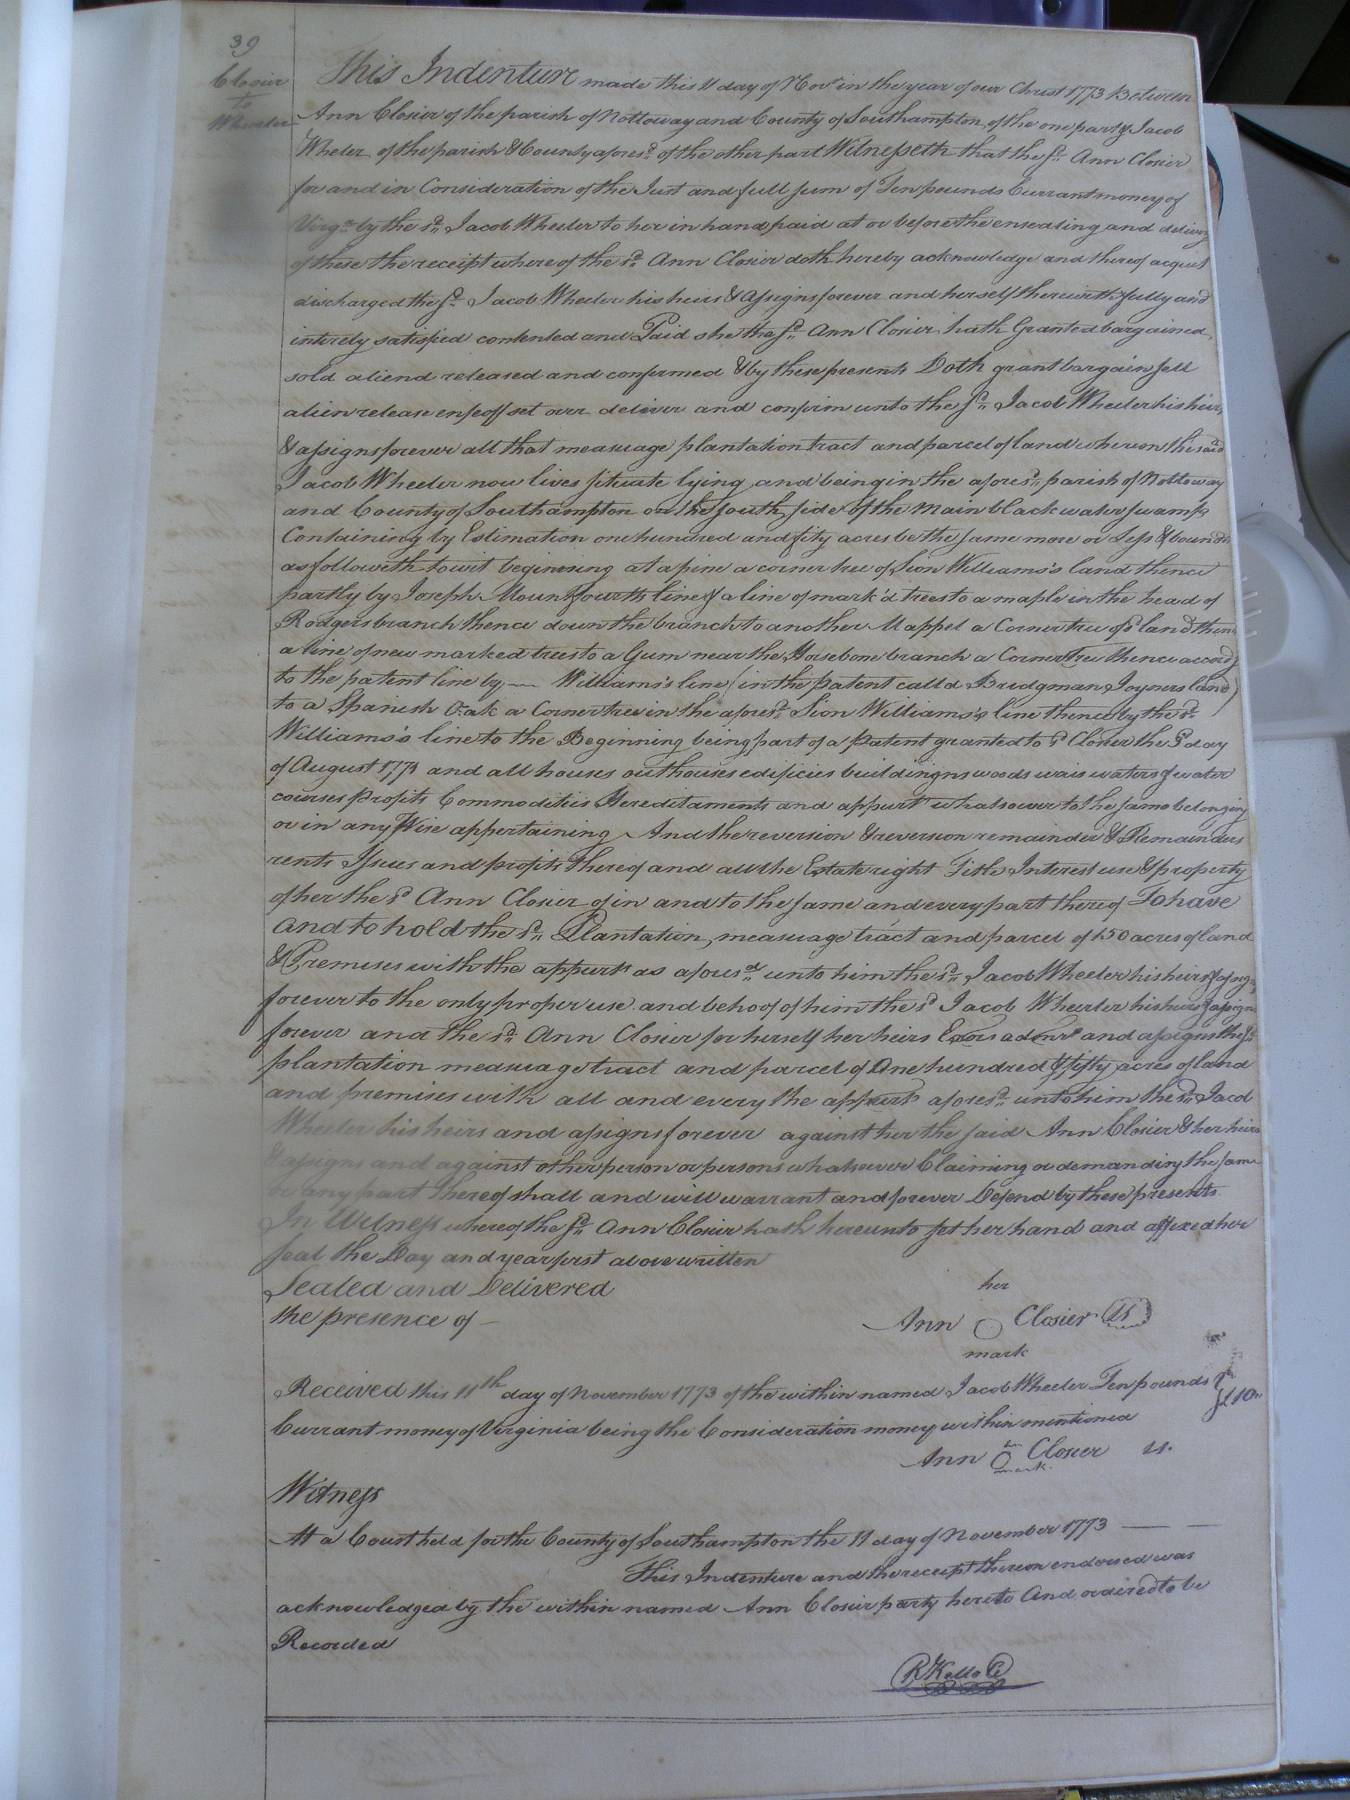 39
Closier
to
Wheeler
This Indenture made this 11 day of Novr in the year of our Christ 1773 Between
Ann Closier of the parish of Nottoway and County of Southampton of the one part & Jacob
Wheler of the parish & County aforesd of the other part Witnesseth that the sd Ann Closier
for and in Consideration of the Just and full sum of Ten pounds Currant money of
Virga by the sd Jacob Wheeler to her in hand paid at or before the ensealing and delivery
of these the receipt where of the sd Ann Closier doth hereby acknowledge and thereof acquit
discharged the sd Jacob Wheeler his heirs & assigns forever and herself therewith fully and
intirely satisfied contented and Paid she the sd Ann Closier hath Granted bargained,
sold aliend released and confirmed & by these presents Doth grant bargain sell
alien release enfeoff set over deliver and confirm unto the sd Jacob Wheeler his heirs
& assigns forever all that measuage plantation tract and parcel of land whereon the said
Jacob Wheeler now lives situate lying and being in the aforesd parish of Nottoway
and County of Southampton on the South side of the Main black water swamp
Containing by Estimation one hundred and fity acres be the same more or Less & bound
as followeth towit begining at a pine a corner tree of Sion Williams's land thence
partly by Joseph Mountfourth line & a line of mark'd trees to a maple in the head of
Rodgers branch thence down the branch to another Mappel a Corner tree of sd land thence
a line of new marked trees to a Gum near the Horsebone branch a Corner Tree thence accordg
to the patent line by — Williams's line (in the patent calld Bridgman Joyners land)
to a Spanish Oak a Corner tree in the aforesd Sion Williams's line thence by the sd
Williams's line to the Beginning being part of a Patent granted to sd Closier the day
of August 1773 and all houses outhouses edificies buildinigns woods wais waters & water
courses Profits Commodities Hereditaments and appurts whatsoever to the same belonging
or in any Wise appertaining And the reversion & reversion remainder & Remainders
rents Issues and profits thereof and all the Estate right Title Interest use & property
of her the sd Ann Closier of in and to the same and every part thereof To have
And to hold the sd Plantation, measuage tract and parcel of 150 acres of land
& Premises with the appurts as aforesd unto him the sd Jacob Wheeler his heirs & assigns
forever to the only proper use and behoof of him the sd Jacob Wheeler his heirs & assigns
forever and the sd Ann Closier for herself her heirs Exors admrs and assigns the sd
plantation measuage tract and parcel of One hundred & fifty acres of land
and premises with all and every the appurts aforesd unto him the sd Jacob
Wheeler his heirs and assigns forever against her the said Ann Closier & her heirs
& assigns and against other person or persons whatsoever Claiming or demanding the same
or any part thereof shall and will warrant and forever Defend by these presents
In Witness whereof the sd Ann Closier hath hereunto set her hand and affixed her
seal the Day and year first above written
Sealed and Delivered
the presence of —
her
Ann O Closier LS
mark
Received this 11th day of November 1773 of the within named Jacob Wheeler Ten pounds
£10
Currant money of Virginia being the Consideration money within mentioned
Ann her O mark Closier LS.
Witness
At a Court held for the County of Southampton the 11 day of November 1773 — —
This Indenture and the receipt thereon endorsed was
acknowledged by the within named Ann Closier party hereto And ordired to be
Recorded
R Kello C